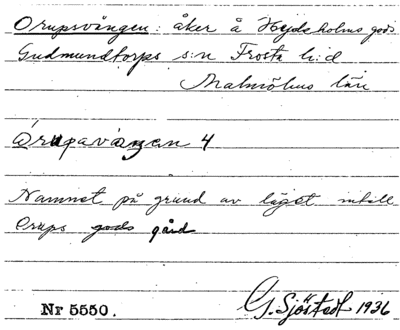 Orupsvången: åker å Hejdeholms gods
Gudmundtorps s:n Frosta h:d
Malmöhus län
Årupavången 4
Namnet på grund av läget intill
Orups gods gård
Nr 5550. G. Sjöstedt 1936